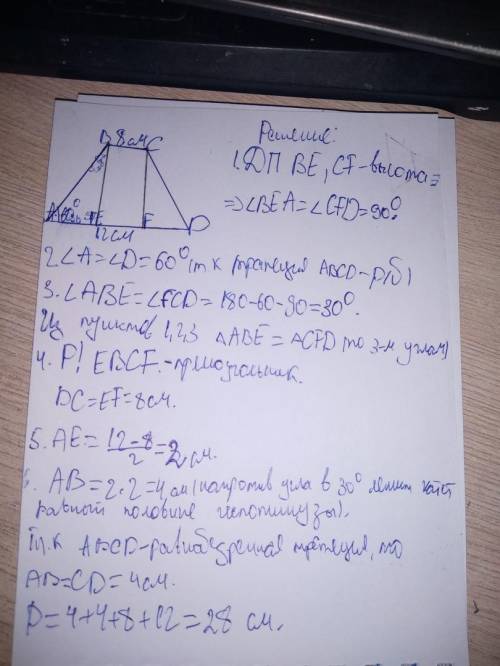 B 8 см C
Решение:
1. ДП BE, CF-высота ⇒
⇒ ∠BEA = ∠CFD = 90°
A 60° E F D
12 см
2. ∠A = ∠D = 60° (т к трапеция ABCD - р/б)
3. ∠ABE = ∠FCD = 180-60-90 = 30°.
Из пунктов 1,2,3 △ABE = △CFD (по 3-м углам)
4. Р! EBCF.-прямоугольник.
BC = EF = 8 см.
5. AE = 12-8/2 = 2 см.
AB = 2·2 = 4 см (напротив угла в 30° лежит катет
равный половине гипотинузы).
Т.к ABCD-равнобедренная трапеция, то
AB = CD = 4 см.
P = 4+4+8+12 = 28 см.